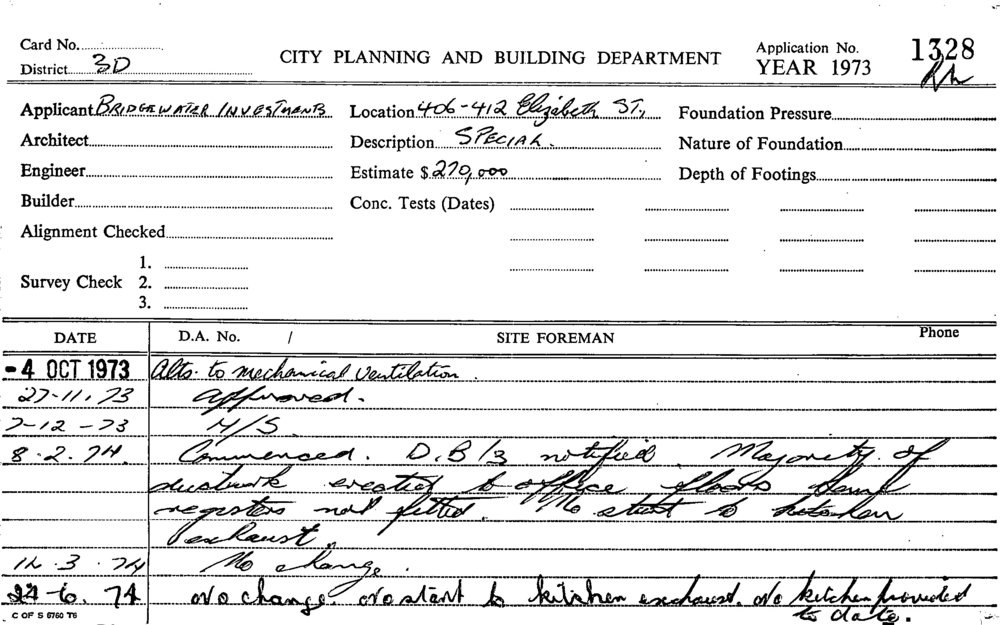 Card No.
District 3D
CITY PLANNING AND BUILDING DEPARTMENT
Application No. 1328
YEAR 1973
Applicant BRIDGEWATER INVESTMENTS
Location 406-412 Elizabeth ST.,
Foundation Pressure
Architect
Description SPECIAL.
Nature of Foundation
Engineer
Estimate $ 270,000
Depth of Footings
Builder
Conc. Tests (Dates)
Alignment Checked
Survey Check
1.
2.
3.
DATE D.A. No. / SITE FOREMAN Phone
-4 OCT 1973 Alts. to mechanical ventilation.
27-11.73 approved.
7-12-73 N/S
8.2.74. Commenced. D.B/3 notified. Majority of
ductwork erected to office floors some
registers not fitted. No start to kitchen
exhaust.
12.3.74 No change.
24-6.74 No change. No start to kitchen exhaust. No kitchen provided
to date.
C OF S 6760 T6